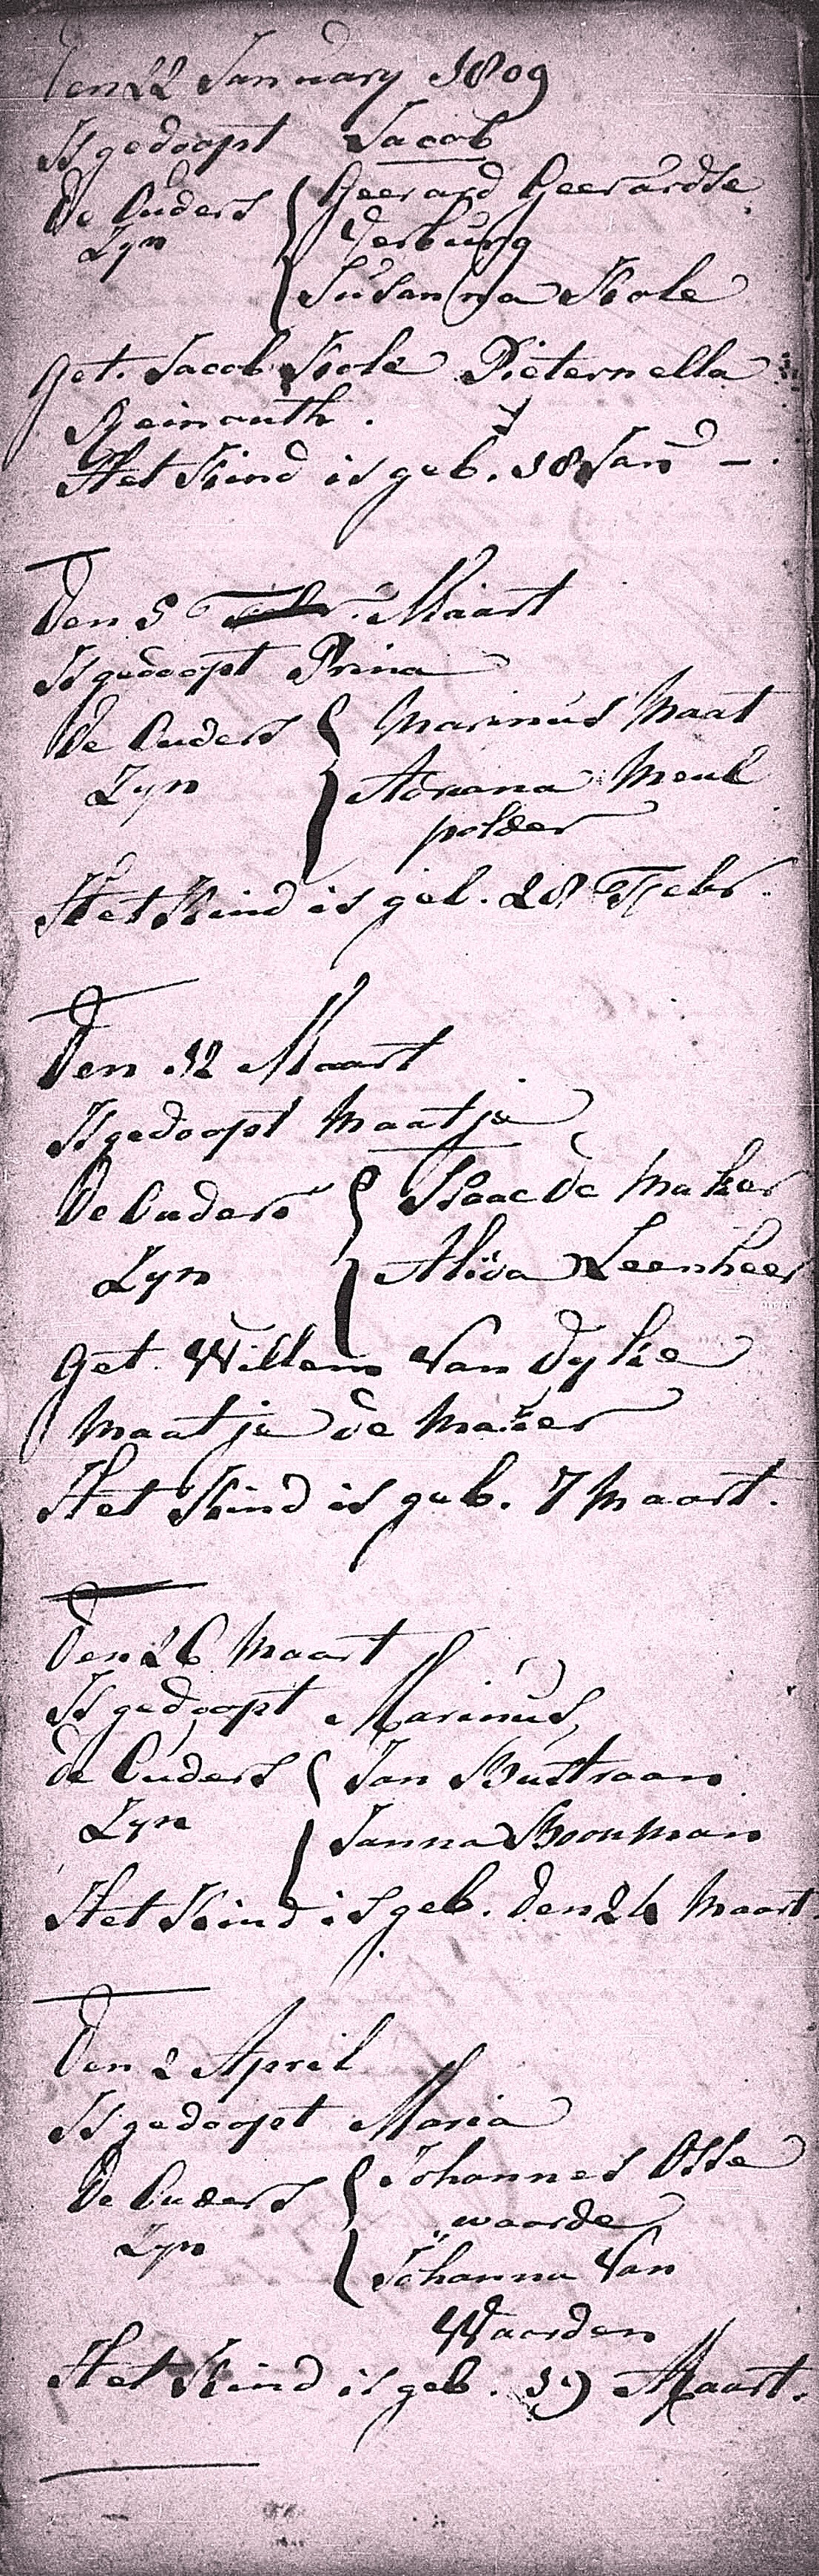 Den 22 January 1809
Is gedoopt Jacob
De Ouders Geerard Geerardse
Zyn Verburg
Susanna Kole
Get. Jacob Kole Pieternella
Reinouth.
Het Kind is geb. 18 Jan
Den 5 Febr. Maart
Is gedoopt Prina
De Ouders Marinus Maat
Zyn Adriana Meul
polder
Het Kind is geb. 28 Febr.
Den 12 Maart
Is gedoopt Maatje
De Ouders Isaac De Maker
Zyn Aliva Leenheer
Get. Willem Van Dyke
Maatje de
Het Kind is geb. 7 Maart.
Den 26 Maart
Is gedoopt Marinus
de Ouders Jan Bustraan
Zyn Janna Boonman
Het Kind is geb. den 24 Maart.
Den 2 April
Is gedoopt Maria
De Ouders Johannes Osse
Zyn waarde
Johanna Van
Waarden
Het Kind is geb. 19 Maart.